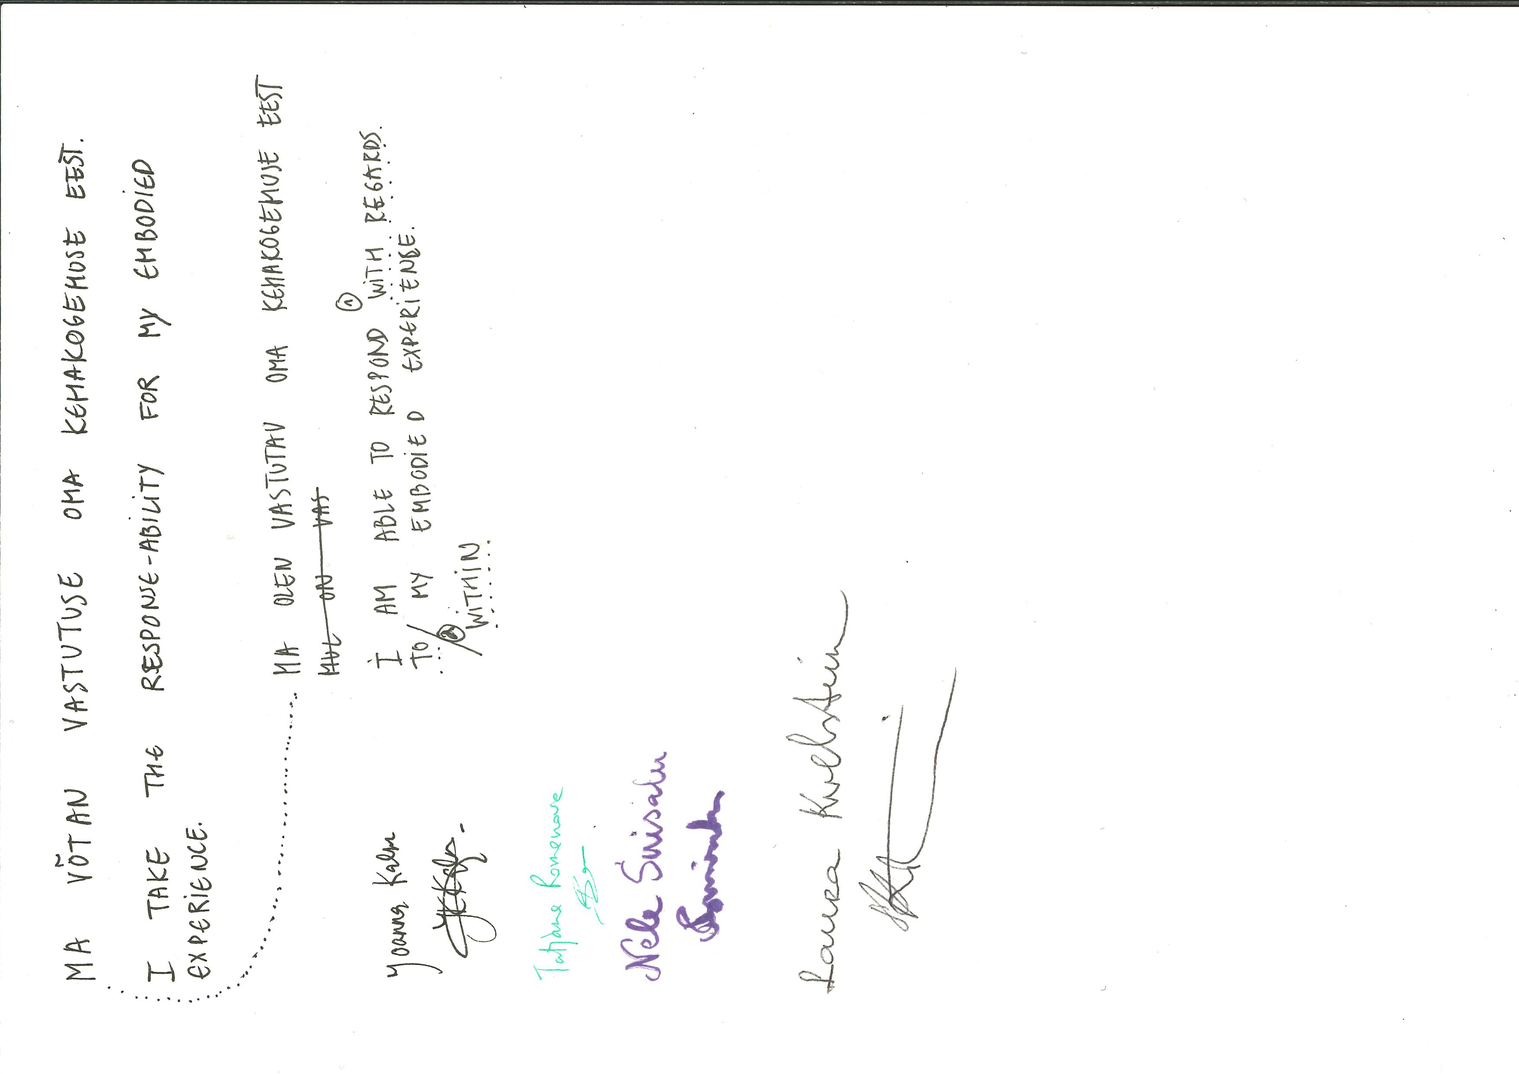 MA VÕTAN VASTUTUSE OMA KEHAKOGEMUSE EEST.
I TAKE THE RESPONSE-ABILITY FOR MY EMBODIED
EXPERIENCE.
MA OLEN VASTUTAV OMA KEHAKOGEMUSE EEST
MUL ON VAS
I AM ABLE TO RESPOND ① WITH REGARDS.
TO/ MY EMBODIED EXPERIENCE.
/② WITHIN
Yoanna Kalm
Tatjana Romanova
Nele Suisalu
Laura Kvelstein